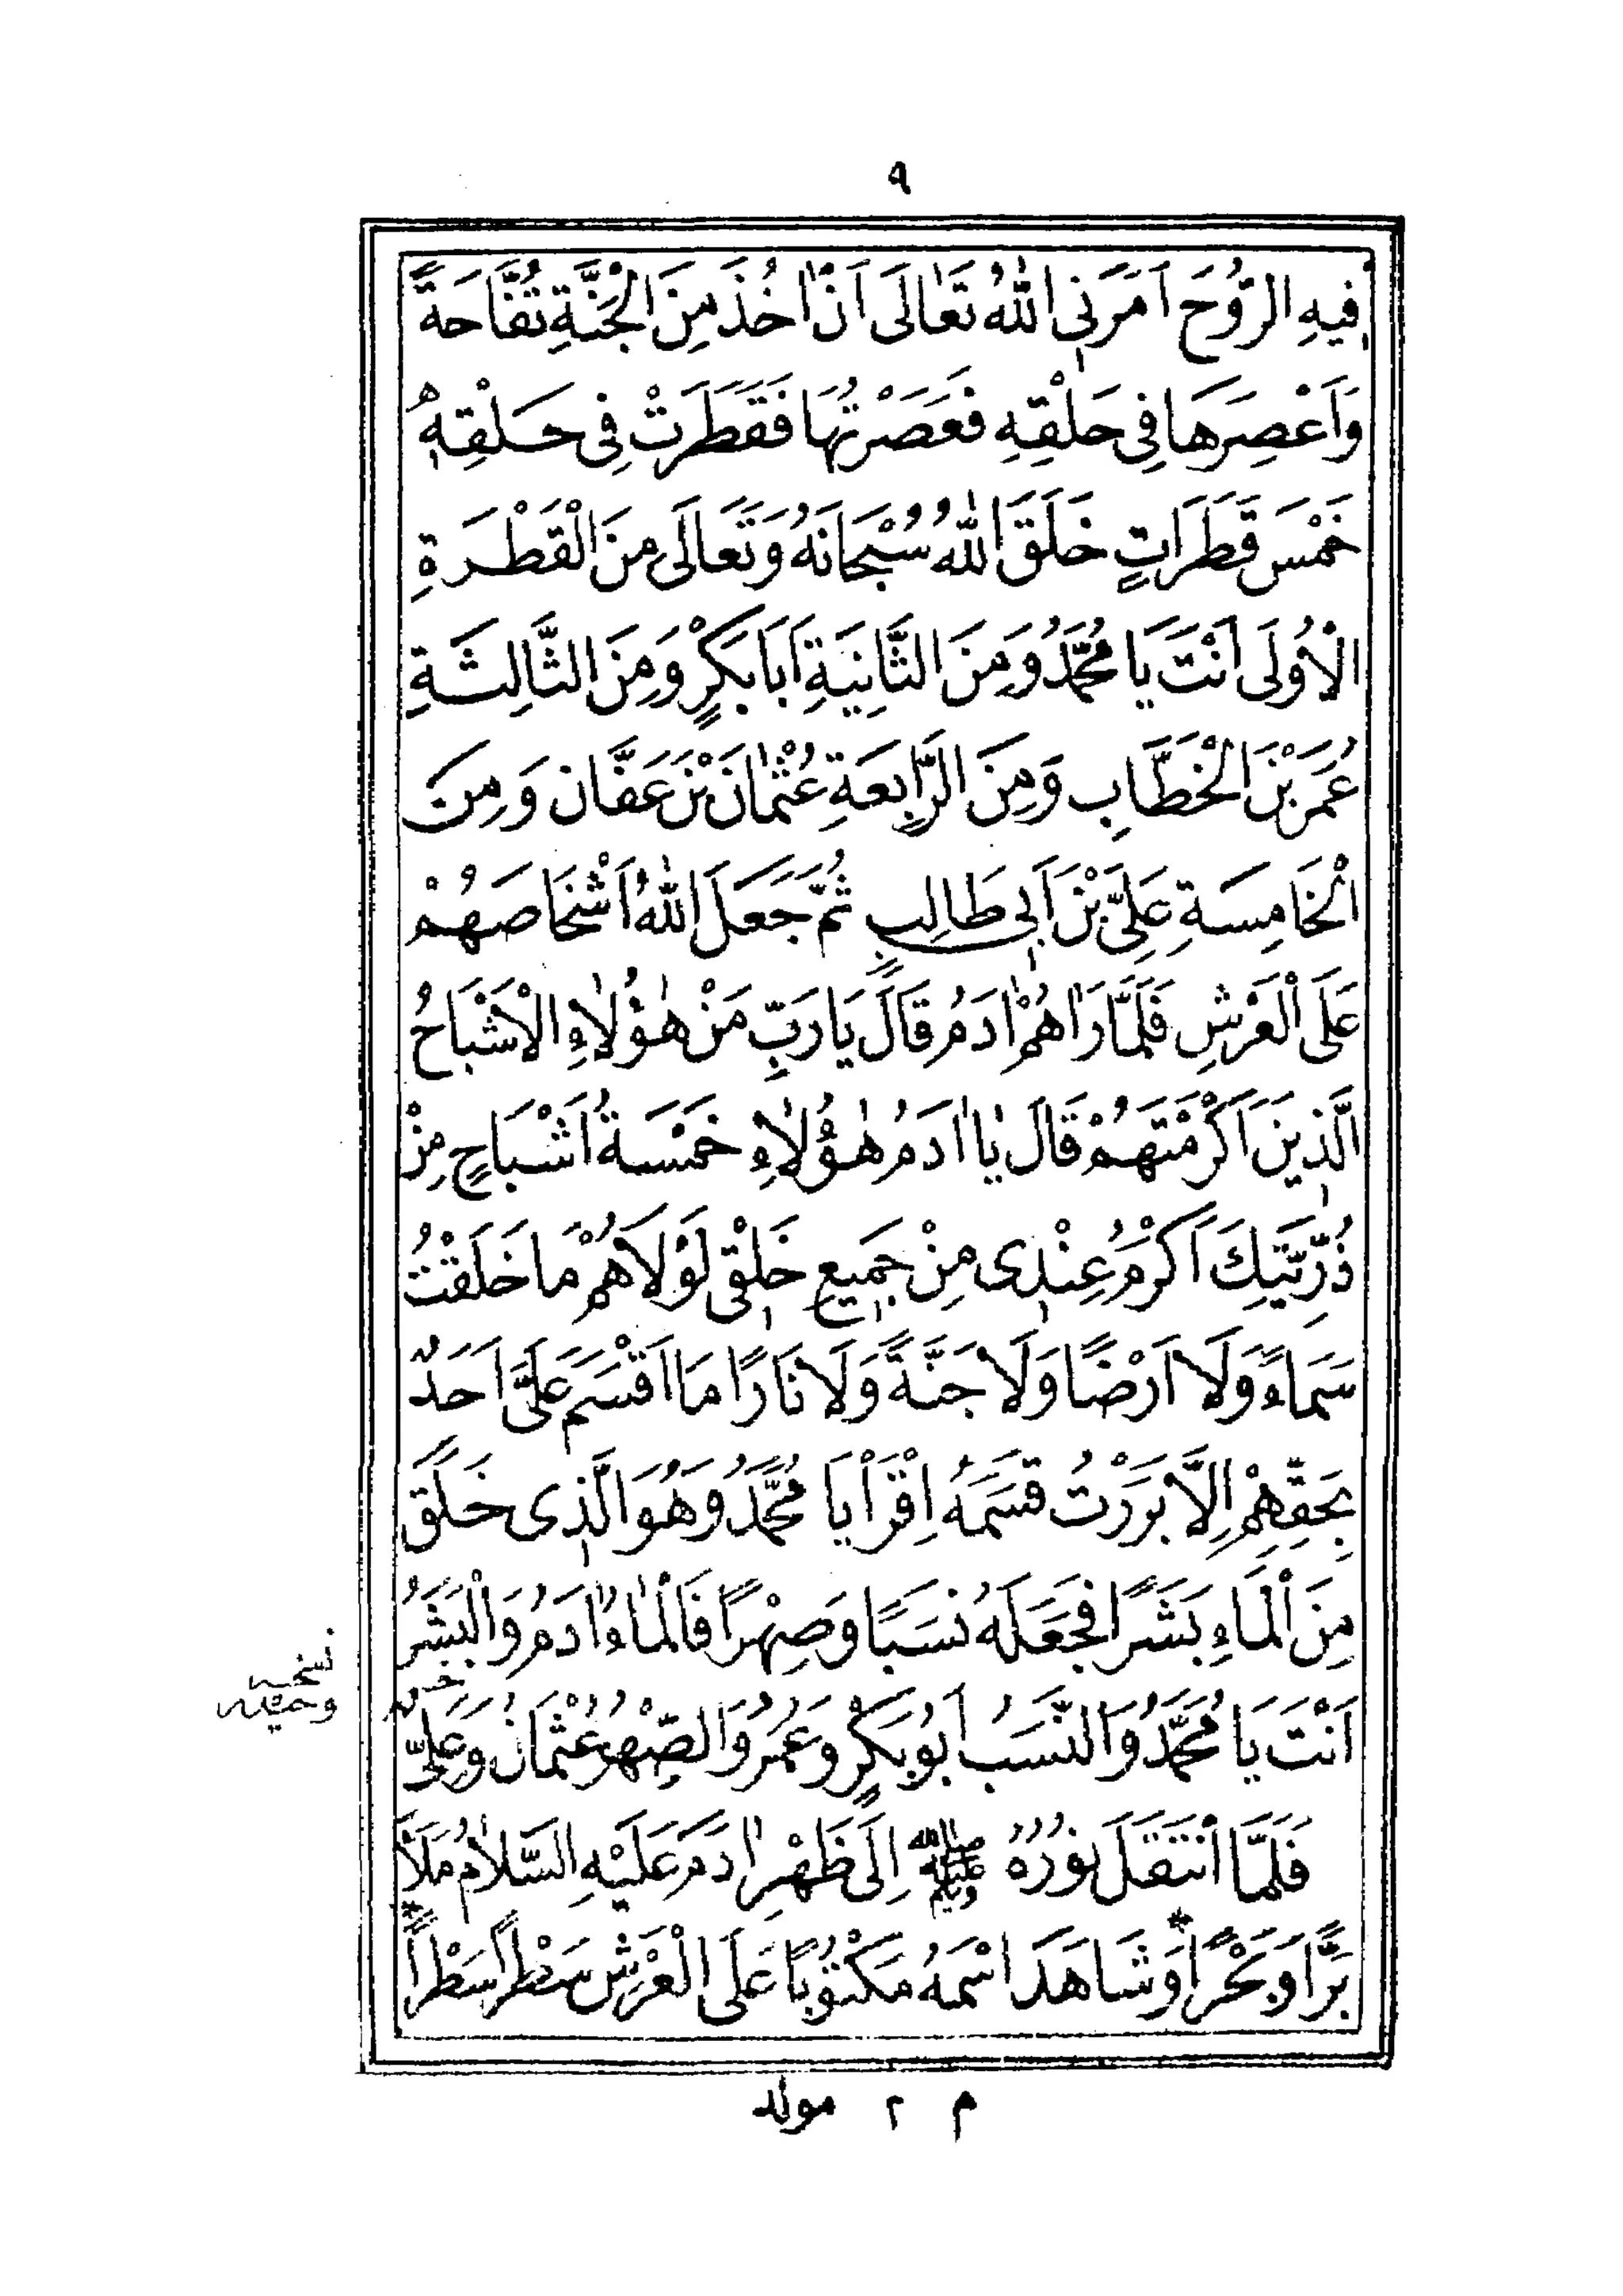 ٩
فِيهِ الرُّوحَ اَمَرَنِى اللّٰهُ تَعَالَى اَنْ اٰخُذَ مِنَ الْجَنَّةِ تُفَّاحَةً
وَاَعْصِرَهَا فِى حَلْقِهِ فَعَصَرْتُهَا فَقَطَرَتْ فِى حَلْقِهٖ
خَمْسَ قَطَرَاتٍ خَلَقَ اللّٰهُ سُبْحَانَهُ وَتَعَالَى مِنَ الْقَطْرَةِ
الْاُولَى اَنْتَ يَا مُحَمَّدُ وَمِنَ الثَّانِيَةِ اَبَا بَكْرٍ وَمِنَ الثَّالِثَةِ
عُمَرَ بْنَ الْخَطَّابِ وَمِنَ الرَّابِعَةِ عُثْمٰانَ بْنَ عَفَّانَ وَمِنَ
الْخَامِسَةِ عَلِىَّ بْنَ اَبِى طَالِبٍ ثُمَّ جَعَلَ اللّٰهُ اَشْخَاصَهُمْ
عَلَى الْعَرْشِ فَلَمَّا رَاٰهُمْ اٰدَمُ قَالَ يَا رَبِّ مَنْ هٰؤُلَاءِ الْاَشْبَاحُ
الَّذِينَ اَكْرَمْتَهُمْ قَالَ يٰا اٰدَمُ هٰؤُلَاءِ خَمْسَةُ اَشْبَاحٍ مِنْ
ذُرِّيَّتِكَ اَكْرَمُ عِنْدِى مِنْ جَمِيعِ خَلْقِى لَوْلَاهُمْ مَا خَلَقْتُ
سَمَاءً وَلَا اَرْضًا وَلَا جَنَّةً وَلَا نَارًا مَا اَقْسَمَ عَلَىَّ اَحَدٌ
بِحَقِّهِمْ اِلَّا بَرَرْتُ قَسَمَهُ اِقْرَأْ يَا مُحَمَّدُ وَهُوَ الَّذِى خَلَقَ
مِنَ الْمَاءِ بَشَرًا فَجَعَلَهُ نَسَبًا وَصِهْرًا فَالْمَاءُ اٰدَمُ وَالْبَشَرُ
نسخه
اَنْتَ يَا مُحَمَّدُ وَالنَّسَبُ اَبُو بَكْرٍ وَعُمَرُ وَالصِّهْرُ عُثْمَانُ وَعَلِىٌّ
فَلَمَّا انْتَقَلَ نُورُهُ ﷺ اِلَى ظَهْرِ اٰدَمَ عَلَيْهِ السَّلَامُ مَلَأَ
بَرًّا وَبَحْرًا * وَشَاهَدَ اسْمَهُ مَكْتُوبًا عَلَى الْعَرْشِ سَطْرًا سَطْرًا *
م ٢ مولد